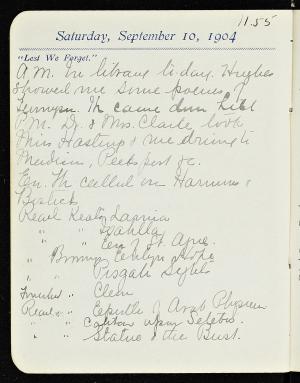 11.55
Saturday, September 10, 1904
"Lest We Forget."
A.M. In library to-day. Hughes
showed me some poems of
Tennyson. H. came down hill
P.M. Dr. & Mrs. Clarke took
Miss Hastings & me driving to
Meridian, &c.
Ev. called on &
Read Keats Lamia
" " Isabella
" " Eve of St. Agnes
" Browning Evelyn Hope
" " Pisgah Sights
Finished " Cleon
Read " Epistle of Arab Physician
" " Caliban upon Setebos
" " Statue & the Bust.